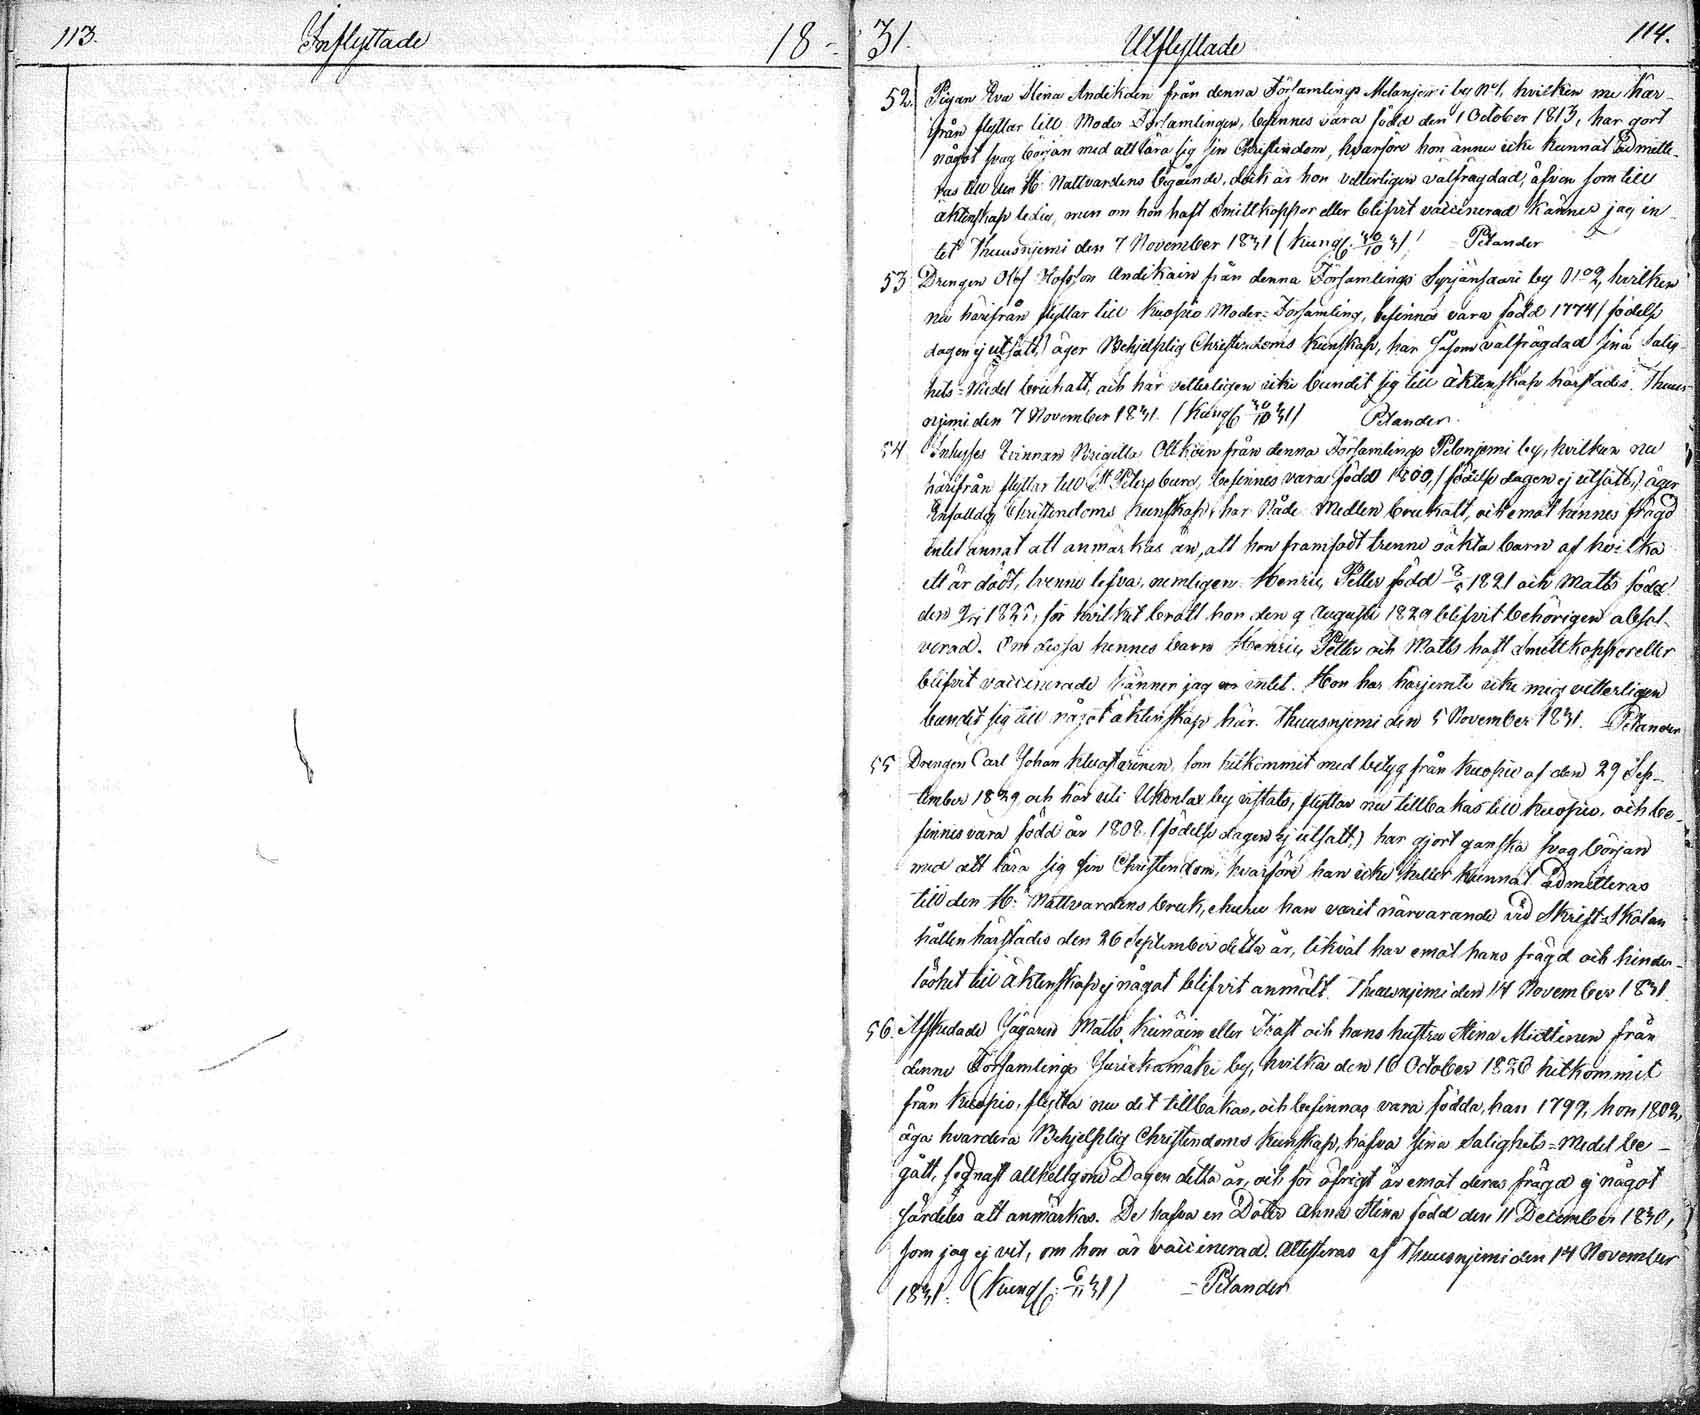 113. Inflyttade 18-
31. Utflyttade 114.
52. Pigan Eva Stina Andikain från denna Församlings Melanjemi by No 1, hvilken nu här-
ifrån flyttar till Moder Församlingen, befinnes vara född den 1 October 1813, har gort
något svag början med att lära sig sin Christendom, hvarföre hon ännu icke kunnat admitte-
ras till den H. Nattvardens begående, dock är hon vetterligen välfrägdad, äfven som till
äktenskap ledig, men om hon haft smittkoppor eller blifvit vaccinerad känner jag in-
tet Thuusnjemi den 7 November 1831 (Kungf. 30/10 31) Pelander
53 Drengen Olof Olofsson Andikain från denna Församlings Syrjänsaari by No 2, hvilken
nu härifrån flyttar till Kuopio Moder-Församling, befinnes vara född 1774 (födelse
dagen ej utsatt,) äger Behjelplig Christendoms Kunskap, har såsom välfrägdad sina Salig-
hets-Medel brukatt, och har vetterligen icke bundit sig till äktenskap härstädes. Thuus-
njemi den 7 November 1831. (Kungf. 30/10 31) Pelander.
54 Inhyses Qvinnan Brigitta Ollikain från denna Församlings Pelonjemi by, hvilken nu
härifrån flyttar till St Petersburg, befinnes vara född 1800, (födelse dagen ej utsatt,) äger
Enfalldig Christendoms Kunskap, har Nåde Medlen brukatt, och emot hennes frägd
intet annat att anmärkas än, att hon framfödt trenne oäkta barn af hvilka
ett är dödt, tvenne lefva, nemligen Henric Petter född 1821 och Matts född
den 1825, för hvilket brott hon den 9 Augusti 1829 blifvit behörigen absol-
verad. Om dessa hennes barn Henric Petter och Matts haft smittkoppor eller
blifvit vaccinerade känner jag intet. Hon har härjemte icke mig vetterligen
bundit sig till något äktenskap här. Thuusnjemi den 5 November 1831. Pelander
55 Drengen Carl Johan Kluastarinen, som hitkommit med betyg från Kuopio af den 29 Sep-
tember 1829 och här uti Ukonlax by vistats, flyttar nu tillbakas till Kuopio, och be-
finnes vara född år 1808. (födelse dagen ej utsatt,) har gjort ganska svag början
med att lära sig sin Christendom, hvarföre han icke heller kunnat admitteras
till den H. Nattvardens bruk, ehuru han varit närvarande vid Skrift-Skolan
hållen härstädes den 26 September detta år, likväl har emot hans frägd och hinder-
löshet till äktenskap ej något blifvit anmält. Thuusnjemi den 14 November 1831.
56. Afskedade Jägaren Matts Kinäin eller Frast och hans hustru Stina Miettinen från
denne Församlings Juurikkamäki by, hvilka den 16 October 1826 hitkommit
från Kuopio, flytta nu dit tillbakas, och befinnas vara födda, han 1797, hon 1802,
äga hvardera Behjelplig Christendoms Kunskap, hafva sina Salighets-Medel be-
gått, sednast allhellgona Dagen detta år, och för öfrigt är emot deras frägd ej något
särdeles att anmärkas. De hafva en Doter Anna Stina född den 11 December 1830,
som jag ej vet, om hon är vaccinerad. Attesteras af Thuusnjemi den 14 November
1831. (Kungf. 6/11 31) Pelander